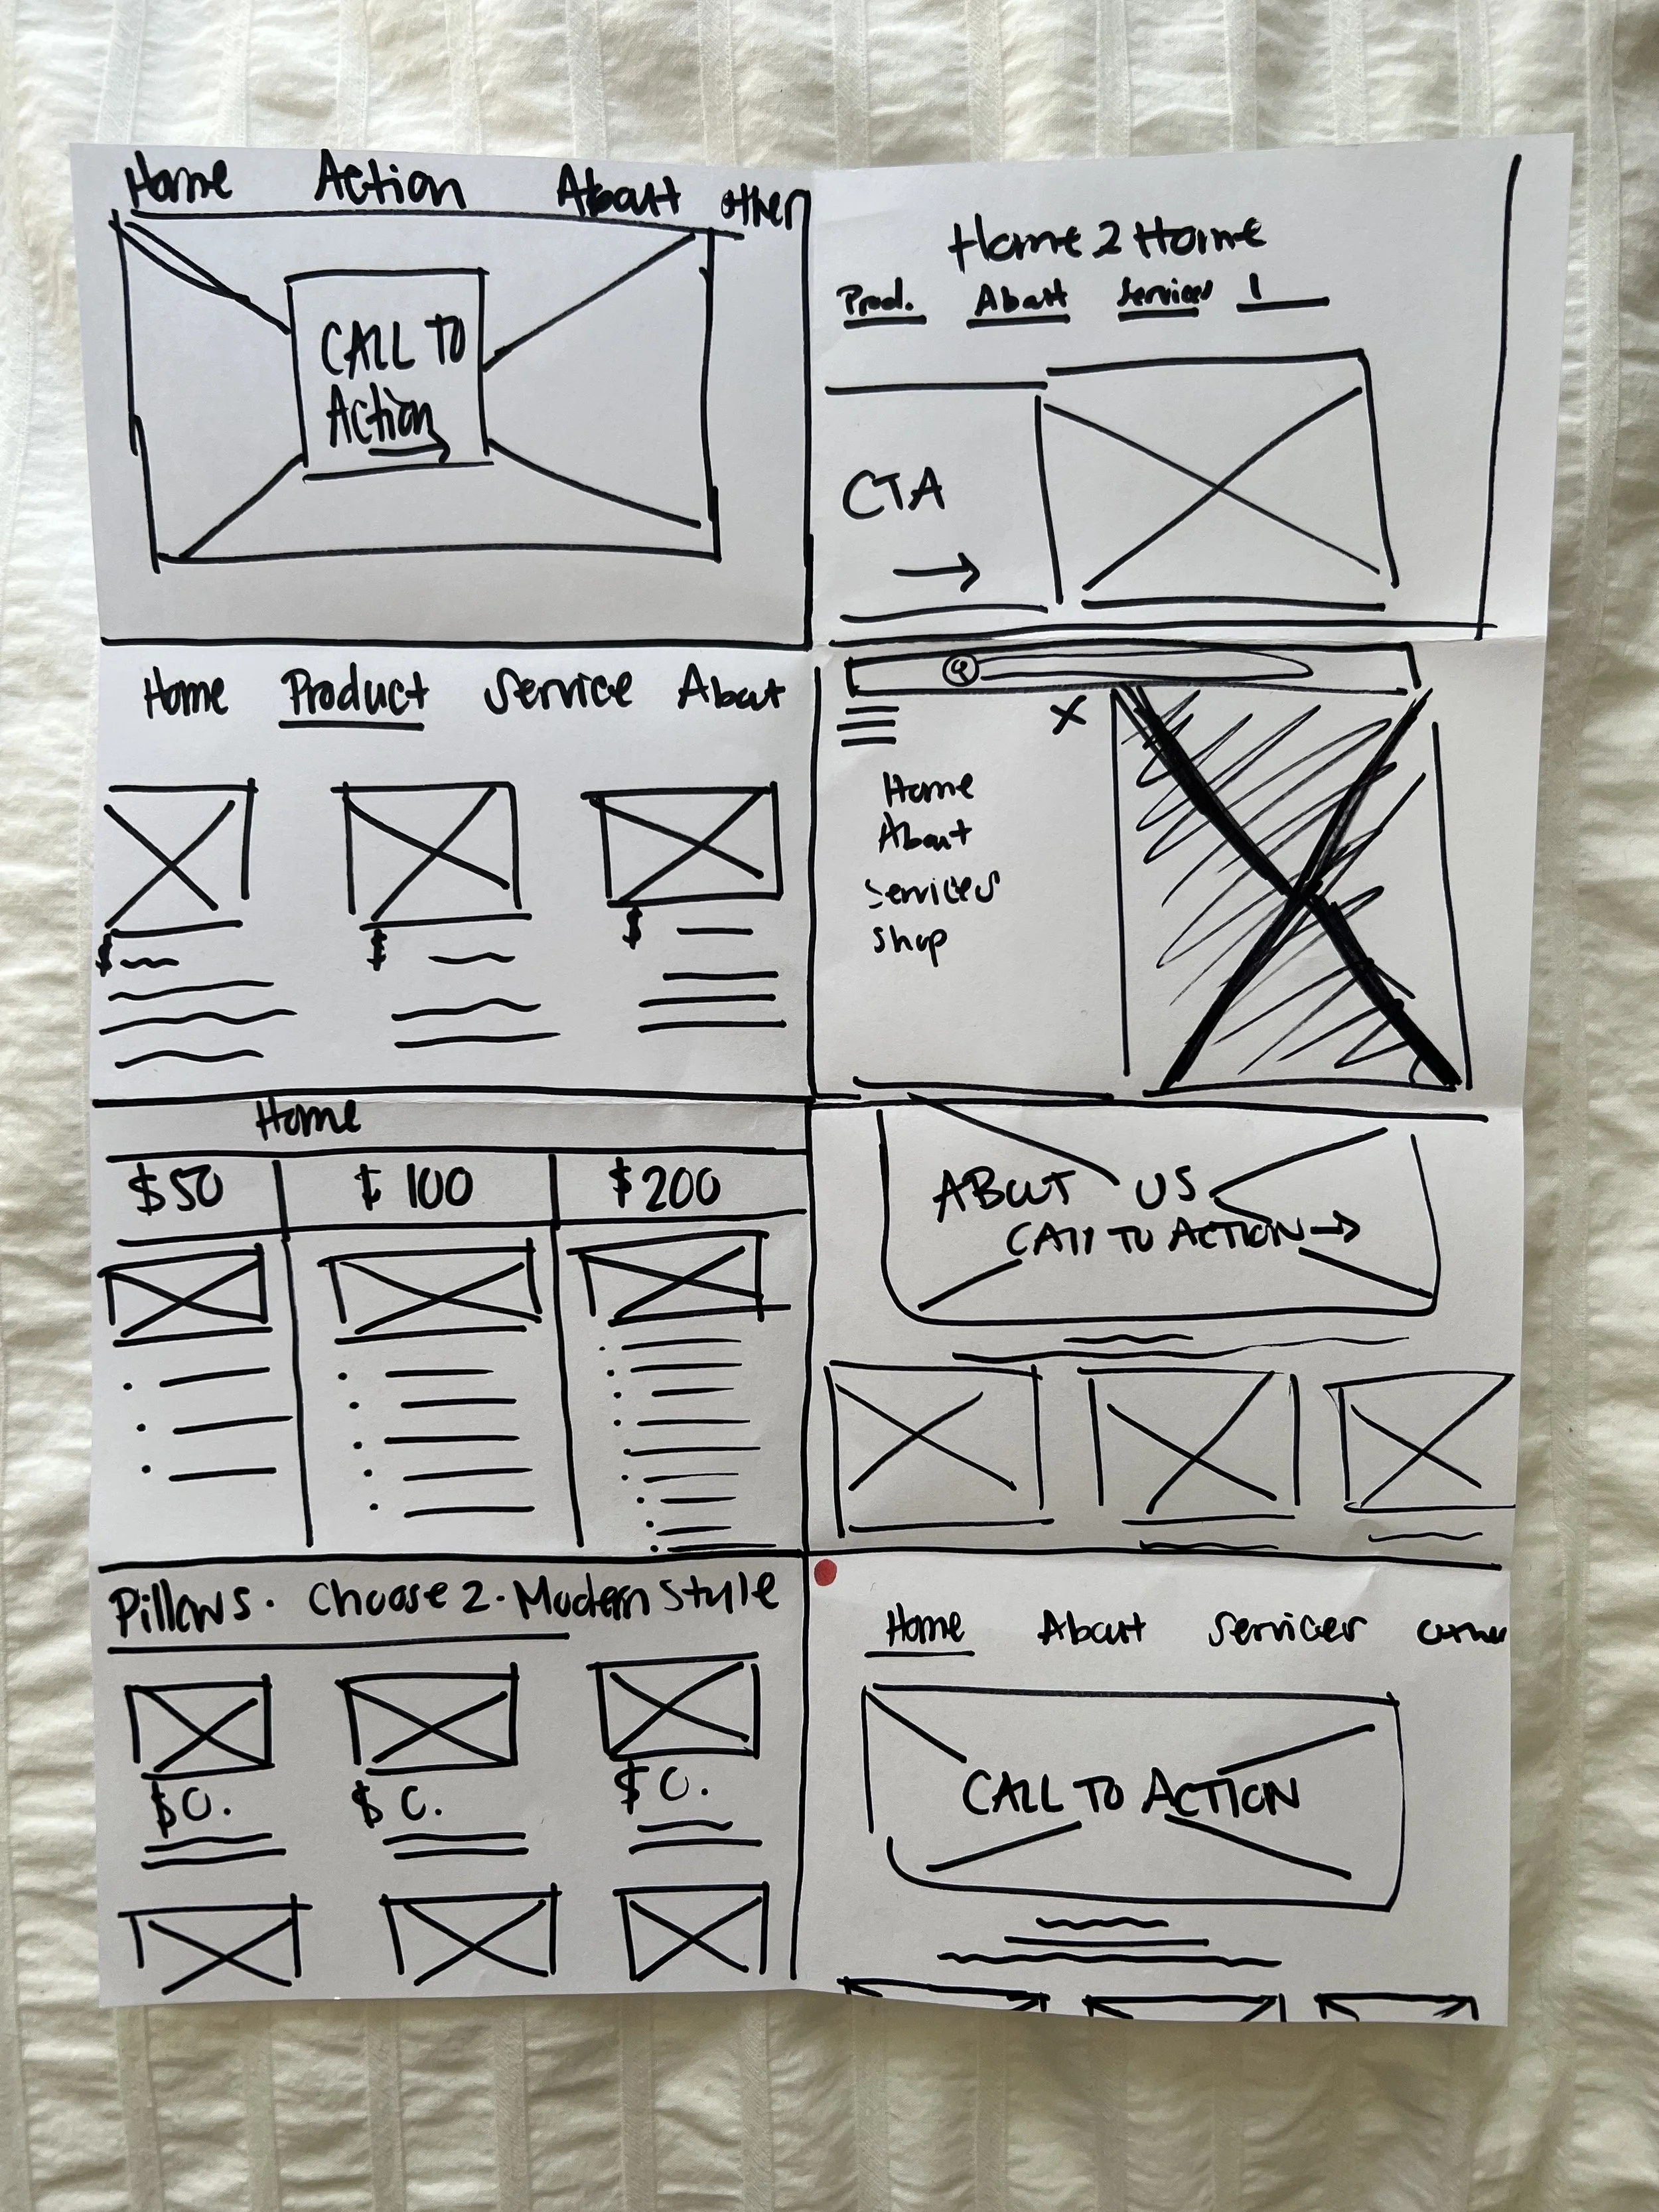 Home Action About other
CALL TO
Action
Home 2 Home
Prod. About Services
CTA
Home Product Service About
$
$
$
X
Home
About
Services
Shop
Home
$50 $100 $200
ABOUT US
CALL TO ACTION
Pillows. Choose 2. Modern Style
$0. $0. $0.
Home About Services other
CALL TO ACTION